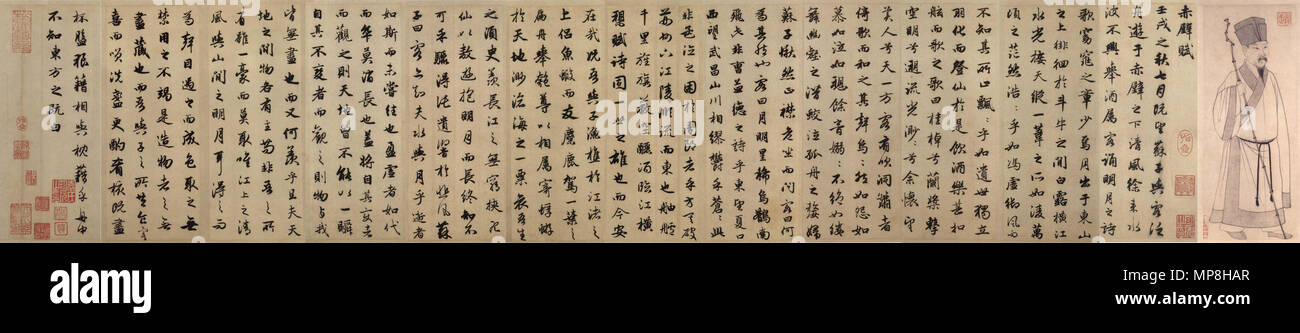 赤壁賦
壬戌之秋七月既望蘇子與客泛
舟遊于赤壁之下清風徐來水
波不興舉酒屬客誦明月之詩
歌窈窕之章少焉月出于東山
之上徘徊於斗牛之間白露橫江
水光接天縱一葦之所如淩萬
頃之茫然浩々乎如馮虛御風而
不知其所止飄々乎如遺世獨立
羽化而登仙於是飲酒樂甚扣
舷而歌之歌曰桂棹兮蘭槳擊
空明兮遡流光渺々兮余懷望
美人兮天一方客有吹洞簫者
倚歌而和之其聲嗚々然如怨如
慕如泣如訴餘音嫋々不絕如縷
舞幽壑之潛蛟泣孤舟之嫠婦
蘇子愀然正襟危坐而問客曰何
為其然也客曰月明星稀烏鵲南
飛此非曹孟德之詩乎東望夏口
西望武昌山川相繆鬱乎蒼々此
非孟德之困於周郎者乎方其破
荊州下江陵順流而東也舳艫
千里旌旗蔽空釃酒臨江橫
槊賦詩固一世之雄也而今安
在哉況吾與子漁樵於江渚之
上侶魚蝦而友麋鹿駕一葉之
扁舟舉匏尊以相屬寄蜉蝣
於天地渺滄海之一粟哀吾生
之須臾羨長江之無窮挾飛
仙以遨遊抱明月而長終知不
可乎驟得託遺響於悲風蘇
子曰客亦知夫水與月乎逝者
如斯而未嘗往也盈虛者如代
而卒莫消長也蓋將自其變者
而觀之則天地曾不能以一瞬
自其不變者而觀之則物與我
皆無盡也而又何羨乎且夫天
地之間物各有主苟非吾之所
有雖一毫而莫取唯江上之清
風與山間之明月耳得之而
為聲目遇之而成色取之無
禁用之不竭是造物者之無
盡藏也而吾與子之所共食客
喜而笑洗盞更酌肴核既盡
杯盤狼藉相與枕藉乎舟中
不知東方之既白
alamy stock photo
MP8HAR
www.alamy.com